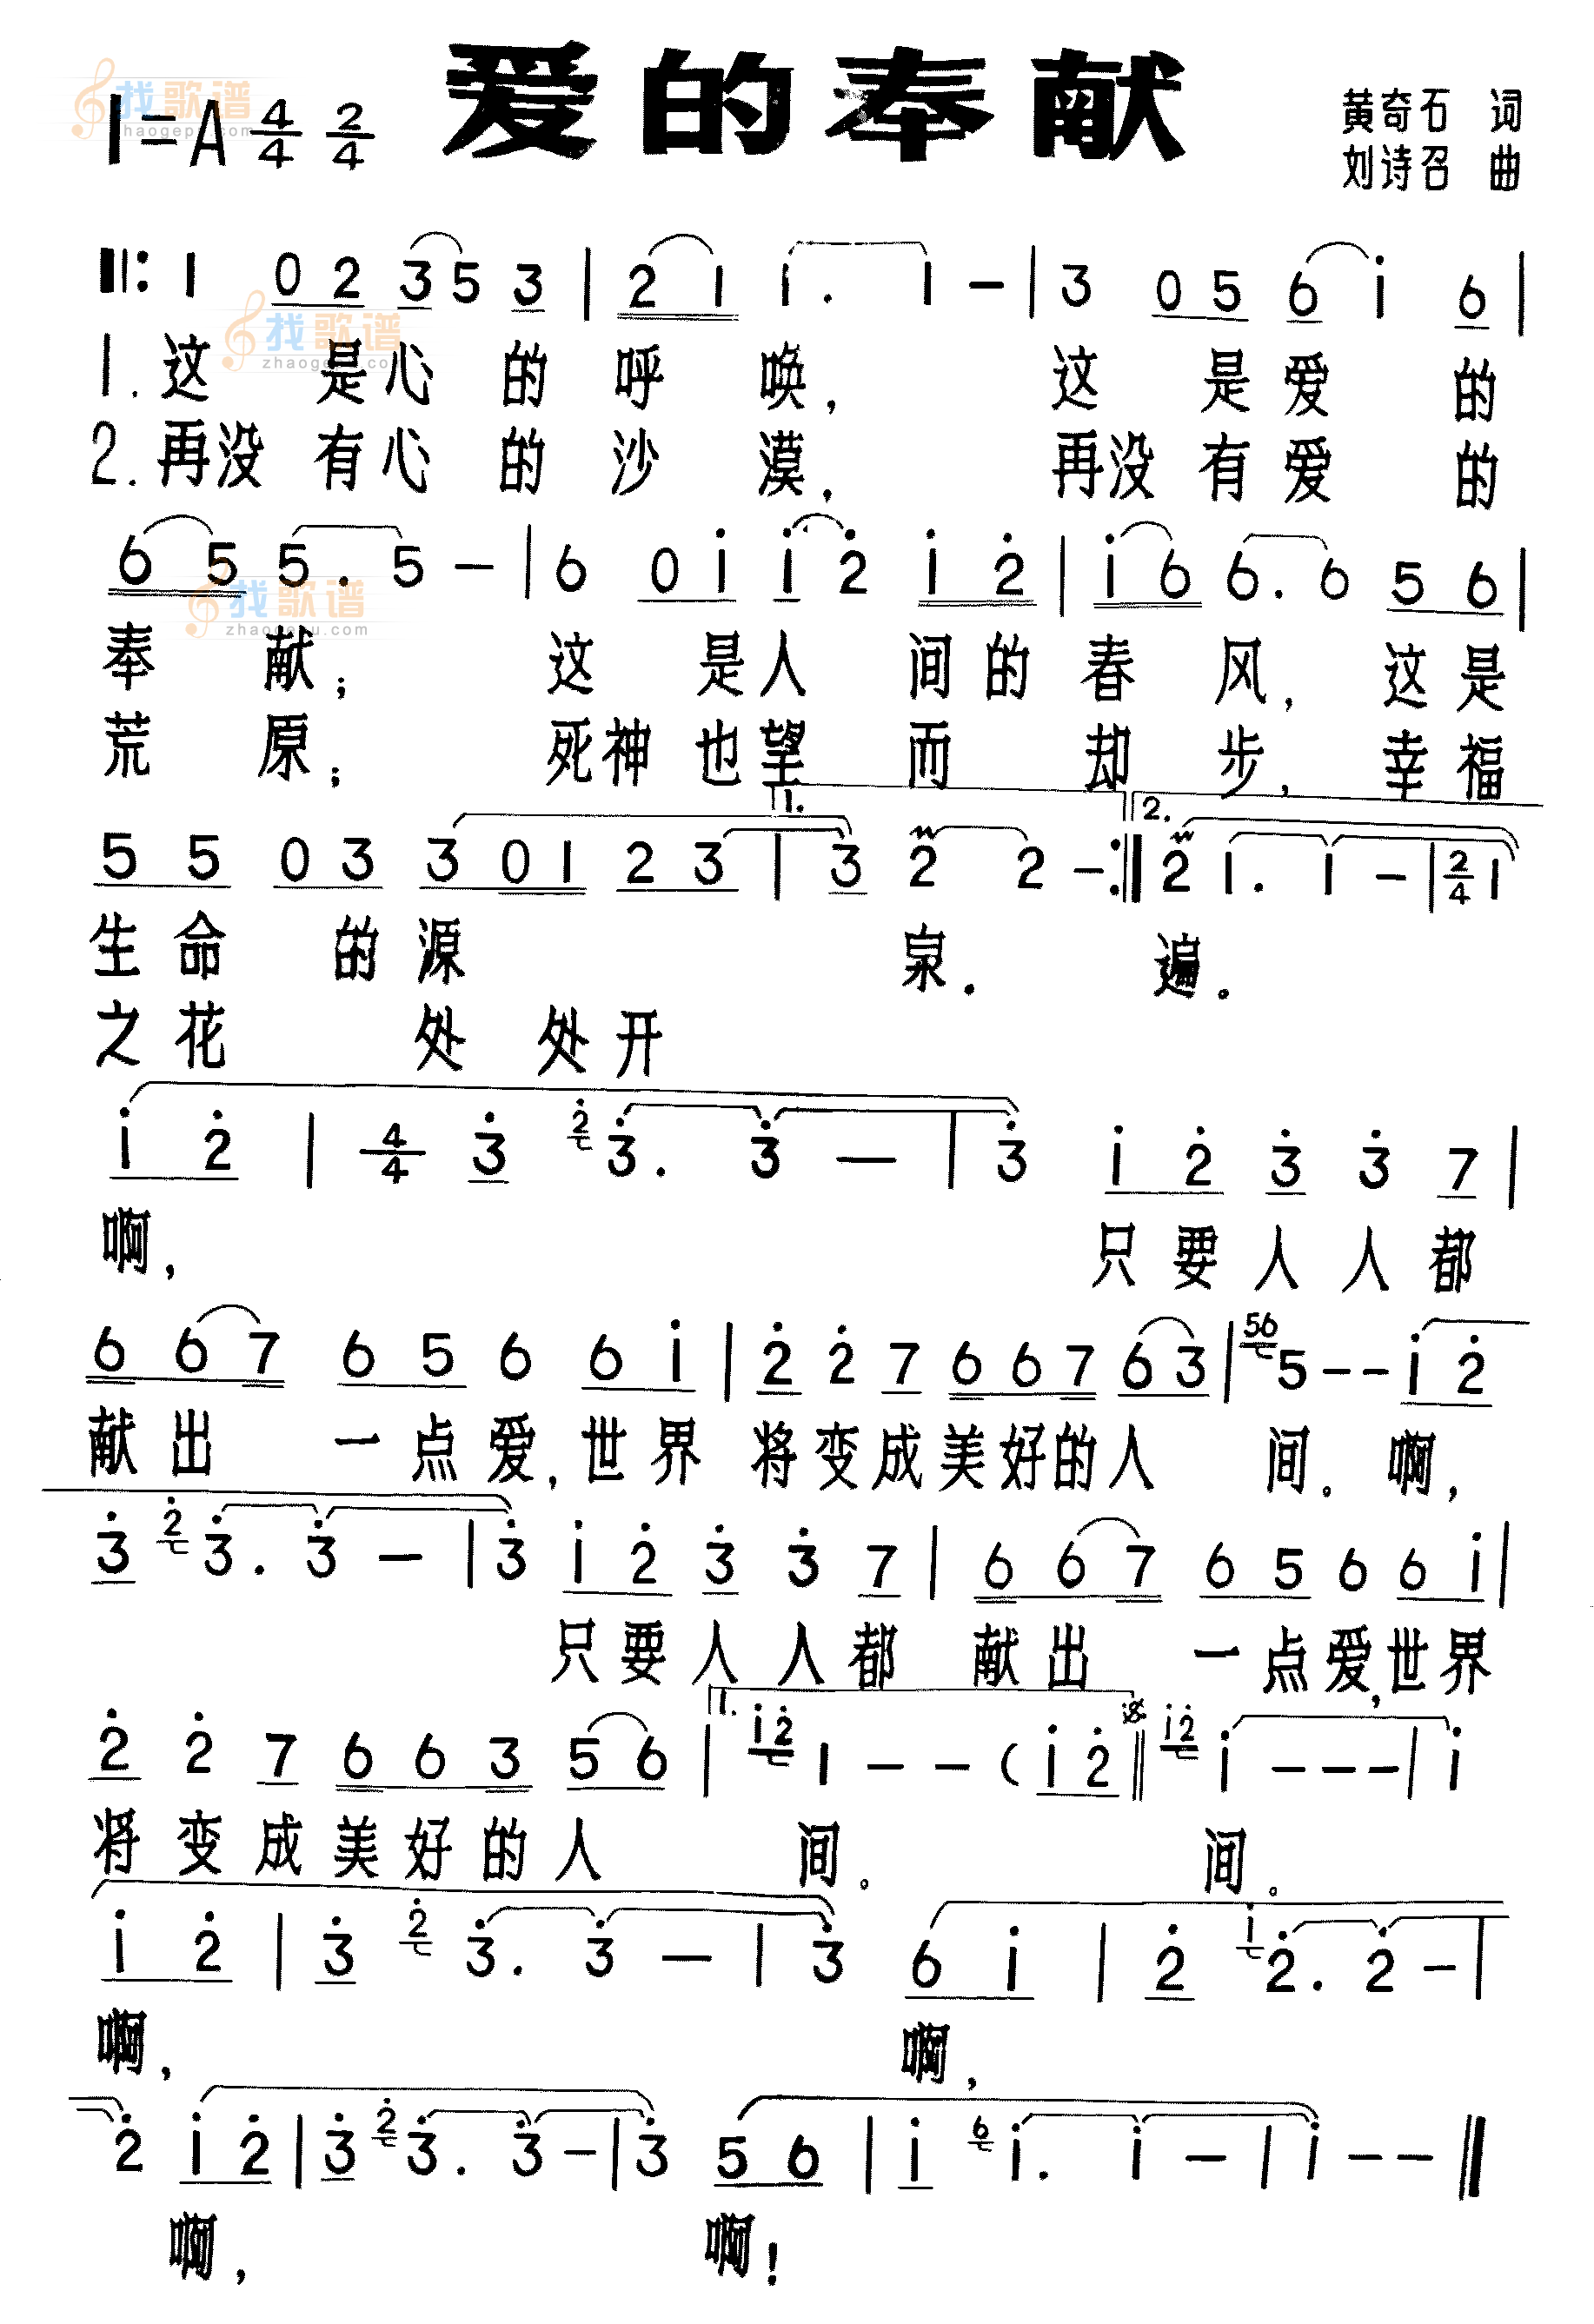 爱的奉献
1=A 4/4 2/4
黄奇石 词
刘诗召 曲
找歌谱
zhaogepu.com
‖: 1 0 2 3 5 3 | 2 1 1. 1 - | 3 0 5 6 i 6 |
1.这 是心 的 呼 唤, 这 是 爱 的
2.再没 有心 的 沙 漠, 再没 有 爱 的
找歌谱
zhaogepu.com
6 5 5. 5 - | 6 0 i i 2 i 2 | i 6 6. 6 5 6 |
找歌谱
zhaogepu.com
奉 献; 这 是人 间的 春 风, 这是
荒 原; 死神 也望 而 却 步, 幸福
1. 2.
5 5 0 3 3 0 1 2 3 | 3 2 2 - :‖ 2 1. 1 - | 2/4 1
生 命 的 源 泉. 遍.
之 花 处 处 开
i 2 | 4/4 3 2 3. 3 - | 3 i 2 3 3 7 |
啊, 只 要 人 人 都
6 6 7 6 5 6 6 i | 2 2 7 6 6 7 6 3 | 56 5 - - i 2
献 出 一 点 爱,世 界 将变成美好的人 间. 啊,
3 2 3. 3 - | 3 i 2 3 3 7 | 6 6 7 6 5 6 6 i |
只 要 人 人 都 献 出 一 点 爱,世 界
1.
2 2 7 6 6 3 5 6 | i2 1 - - ( i 2 ‖ i2 i - - - | i
将 变 成 美 好 的 人 间。 间。
i 2 | 3 2 3. 3 - | 3 6 i | 2 i 2. 2 - |
啊, 啊,
2 i 2 | 3 2 3. 3 - | 3 5 6 | i 6 i. i - | i - - ‖
啊, 啊!